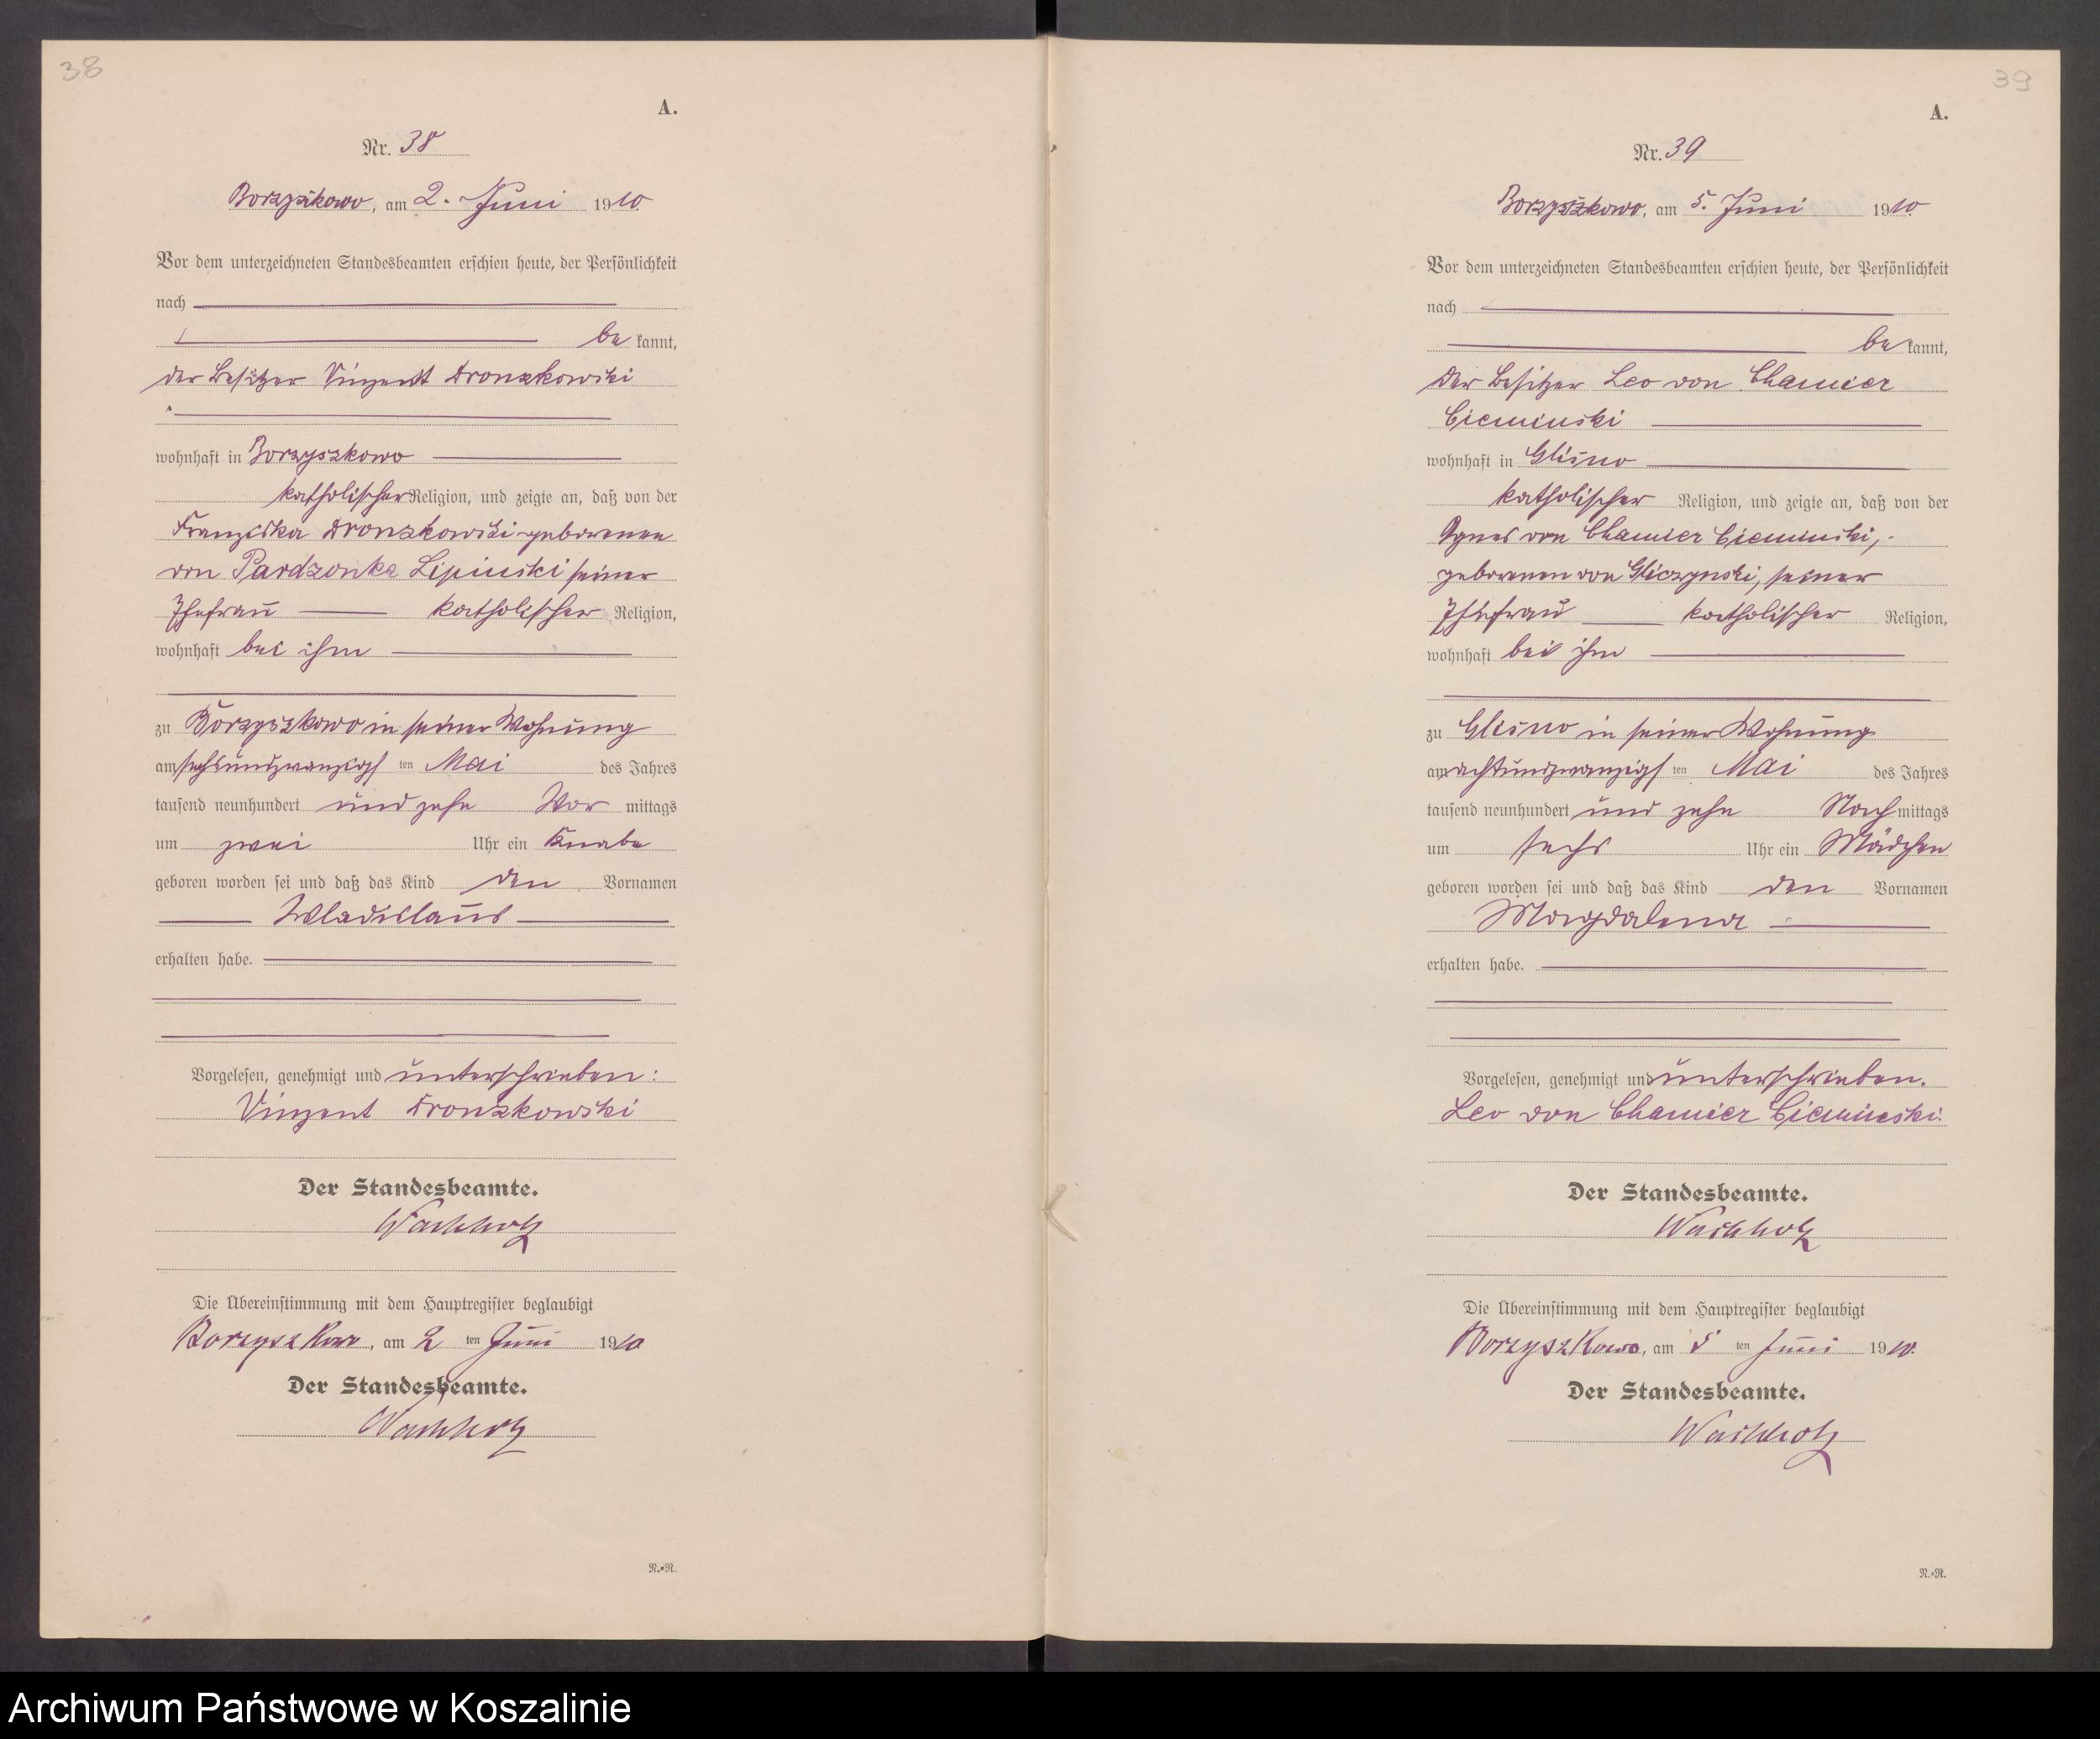 38
A.
Nr. 38
Borzyszkowo, am 2. Juni 1910.
Vor dem unterzeichneten Standesbeamten erschien heute, der Persönlichkeit
nach
be kannt,
der Besitzer Vinzent Dronzkowski
wohnhaft in Borzyszkowo
katholischer Religion, und zeigte an, daß von der
Franziska Dronzkowski geborenen
von Pardzonka Lipinski seiner
Ehefrau katholischer Religion,
wohnhaft bei ihm
zu Borzyszkowo in seiner Wohnung
am sechsundzwanzigst ten Mai des Jahres
tausend neunhundert und zehn Vor mittags
um zwei Uhr ein Knabe
geboren worden sei und daß das Kind den Vornamen
Wladislaus
erhalten habe.
Vorgelesen, genehmigt und unterschrieben:
Vinzent Dronzkowski
Der Standesbeamte.
Wachholz
Die Übereinstimmung mit dem Hauptregister beglaubigt
Borzyszkowo, am 2 ten Juni 1910
Der Standesbeamte.
Wachholz
N.=R.
39
A.
Nr. 39
Borzyszkowo, am 5. Juni 1910.
Vor dem unterzeichneten Standesbeamten erschien heute, der Persönlichkeit
nach
be kannt,
der Besitzer Leo von Chamier
Cieminski
wohnhaft in Glisno
katholischer Religion, und zeigte an, daß von der
Agnes von Chamier Cieminski,
geborenen von Gliczynski, seiner
Ehefrau katholischer Religion,
wohnhaft bei ihm
zu Glisno in seiner Wohnung
am achtundzwanzigst ten Mai des Jahres
tausend neunhundert und zehn Nach mittags
um sechs Uhr ein Mädchen
geboren worden sei und daß das Kind den Vornamen
Magdalena
erhalten habe.
Vorgelesen, genehmigt und unterschrieben.
Leo von Chamier Cieminski.
Der Standesbeamte.
Wachholz
Die Übereinstimmung mit dem Hauptregister beglaubigt
Borzyszkowo, am 5 ten Juni 1910.
Der Standesbeamte.
Wachholz
N.=R.
Archiwum Państwowe w Koszalinie